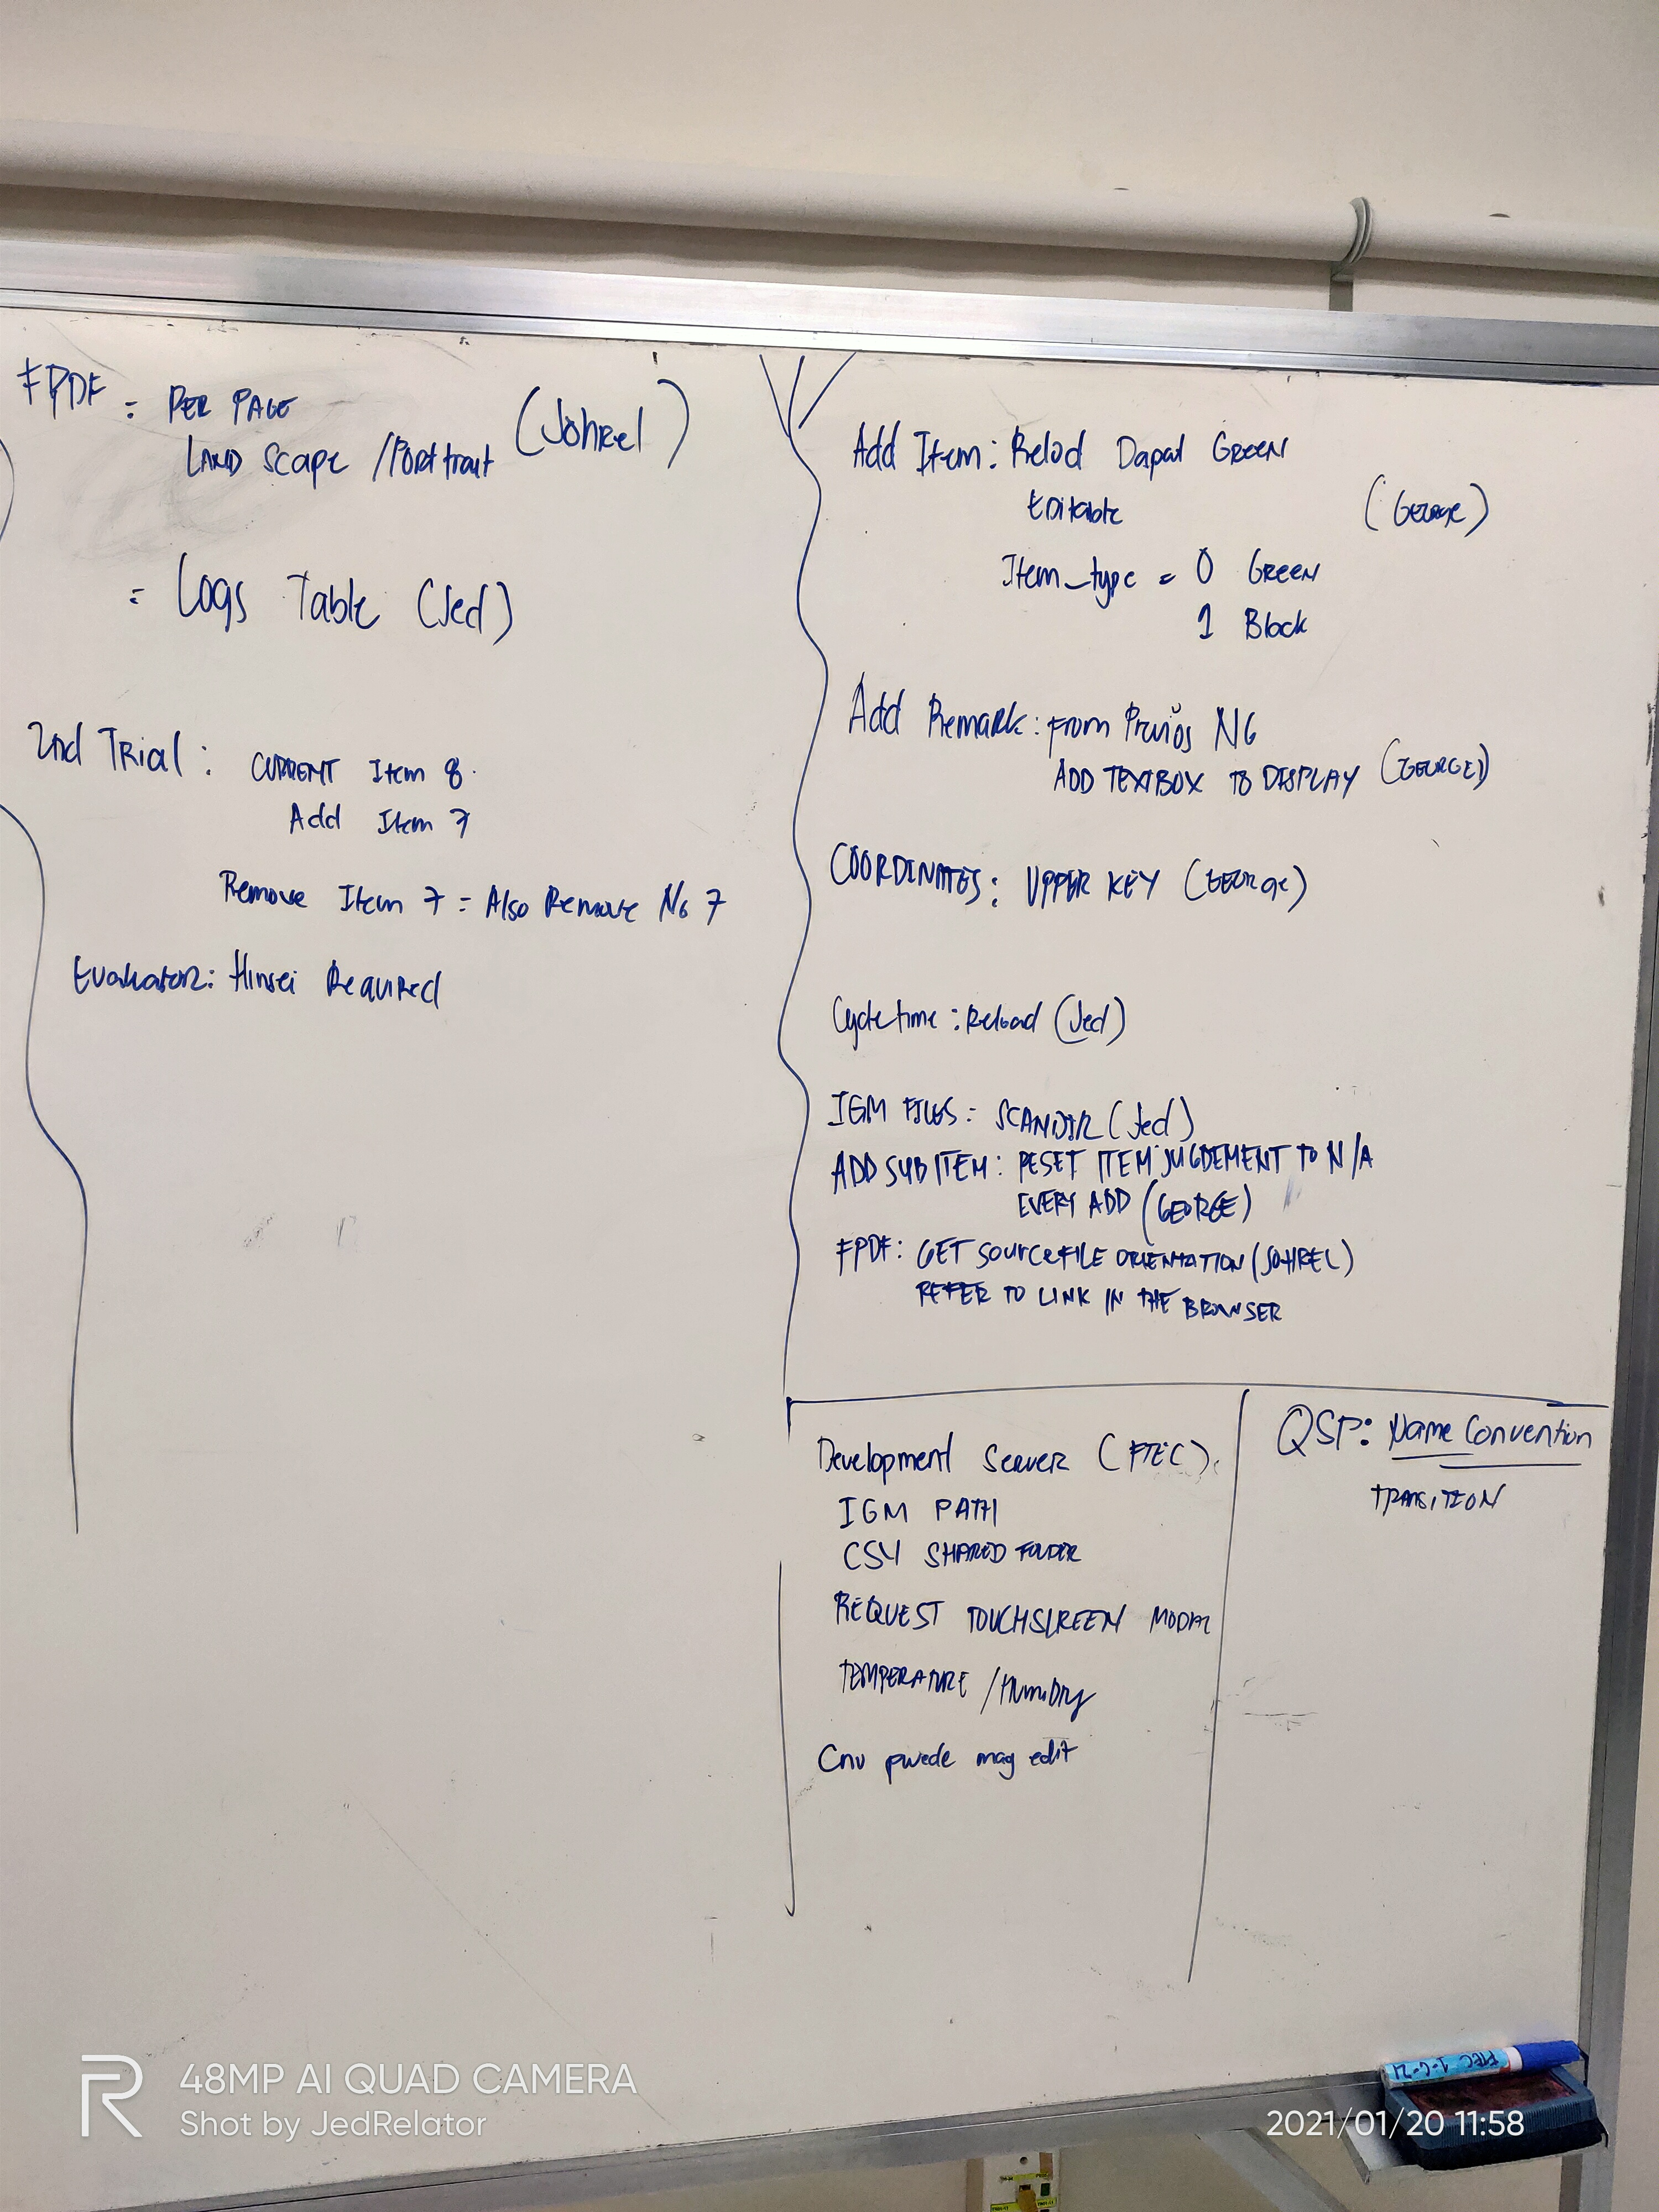 FPDF = PER PAGE (Johrel)
LANDSCAPE / Porttrait
= Logs Table (Jed)
2nd TRIAL : CURRENT Item 8
Add Item 7
Remove Item 7 = Also Remove NG 7
Evaluator: Hinsei Required
Add Item : Relod Dapat GREEN
Editable (George)
Item_type = 0 GREEN
1 Black
Add Remark : From NG
ADD TEXTBOX TO DISPLAY (GEORGE)
COORDINATES : UPPER KEY (George)
Cycletime : Reload (Jed)
IGM FILES : SCANDIR (Jed)
ADD SUB ITEM : RESET ITEM JUGDEMENT TO N/A
EVERY ADD (GEORGE)
FPDF : GET SOURCEFILE ORIENTATION (JOHREL)
REFER TO LINK IN THE BROWSER
Development Server (FTEC)
IGM PATH
CSV SHARED FOLDER
REQUEST TOUCHSCREEN
TEMPERATURE / HUMIDITY
pwede mag edit
QSP: Name Convention
TRANSITION
FTEC 1-6-21
48MP AI QUAD CAMERA
Shot by JedRelator
2021/01/20 11:58